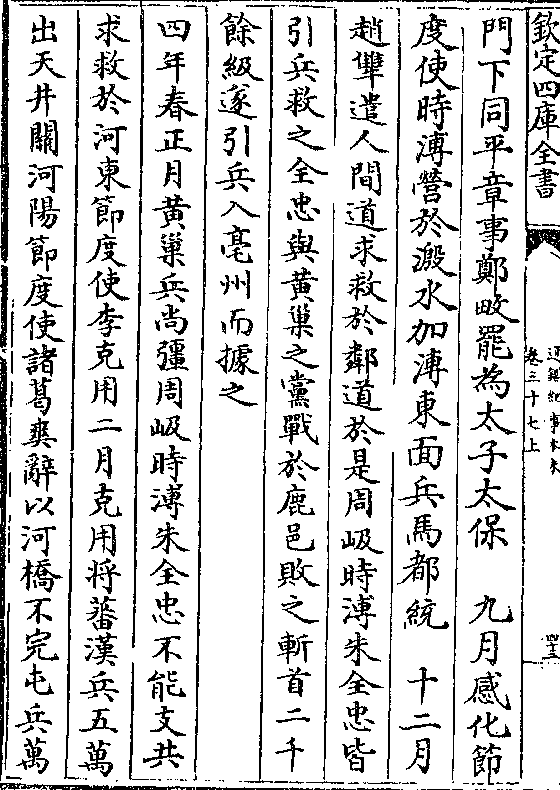 欽定四庫全書
通鑑紀事本末
卷三十七上
門下同平章事鄭畋罷為太子太保　九月感化節
度使時溥營於溵水加溥東面兵馬都統　十二月
趙犨遣人間道求救於鄰道於是周岌時溥朱全忠皆
引兵救之全忠與黃巢之黨戰於鹿邑敗之斬首二千
餘級遂引兵入亳州而據之
四年春正月黃巢兵尚彊周岌時溥朱全忠不能支共
求救於河東節度使李克用二月克用將蕃漢兵五萬
出天井關河陽節度使諸葛爽辭以河橋不完屯兵萬